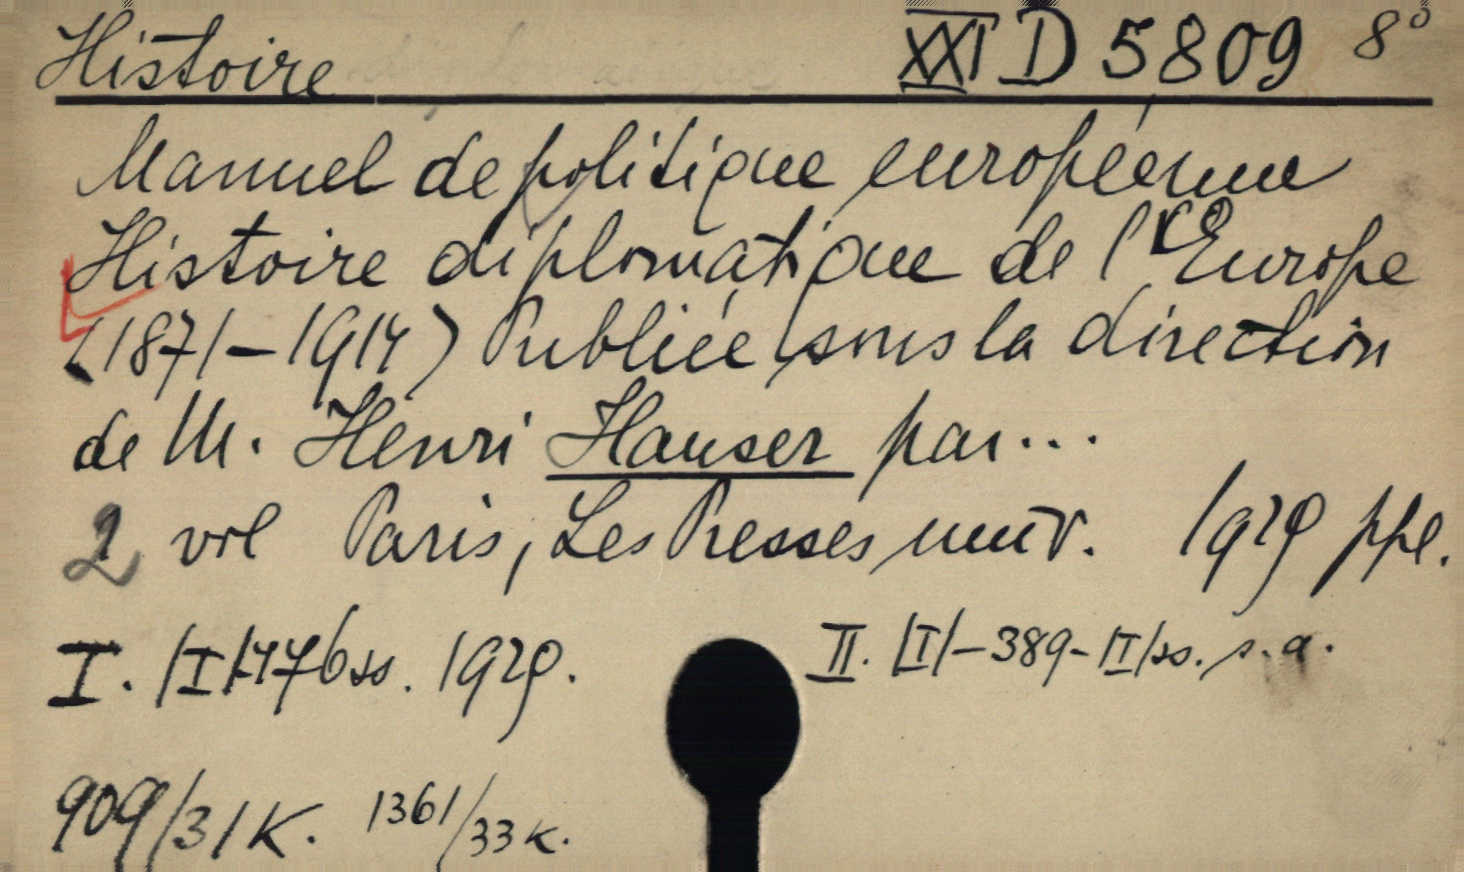 Histoire XXI D 5809 8°
Manuel de politique européenne
Histoire diplomatique de l'Europe
(1871-1914) Publiée sous la direction
de M. Henri Hauser par...
2 vol Paris, Les Presses univ. 1929 ppl.
I. |I|-476 ss. 1929. II. |I|-389-|I| ss. s.a.
909/31 K. 1361/33 K.